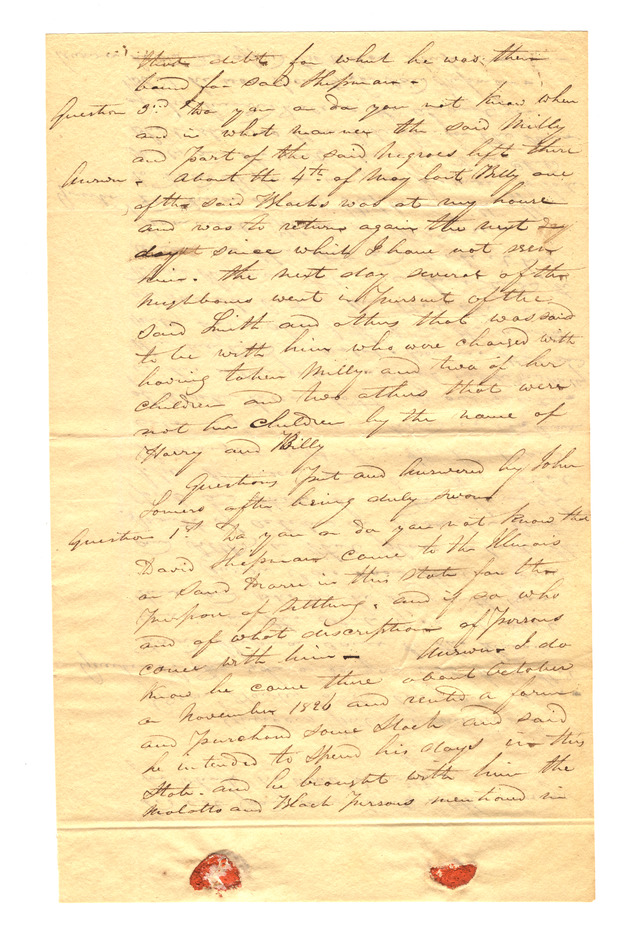 their debts for what he was then
bound for said Shipman.
Question 3rd Do you or do you not know when
and in what manner the said Milly
and part of the said negroes left there
Answer. About the 4th of May last Billy one
of the said Blacks was at my house
and was to return again the next
day since which I have not seen
him. the next day several of the
neighbours went in pursuit of the
said Smith and others that was said
to be with him who were charged with
having taken Milly and two of her
children and two others that were
not her children by the name of
Harry and Billy
Questions put and answered by John
Somers after being duly sworn
Question 1st Do you or do you not know that
David Shipman came to the Illinois
or Sand Prarie in this state for the
purpose of settling. and if so who
and of what discription of persons
came with him — Answer I do
know he came there about October
or November 1826 and rented a farm
and purchased some Stock and said
he intended to spend his days in this
State. and he brought with him the
Molatto and Black persons mentioned in